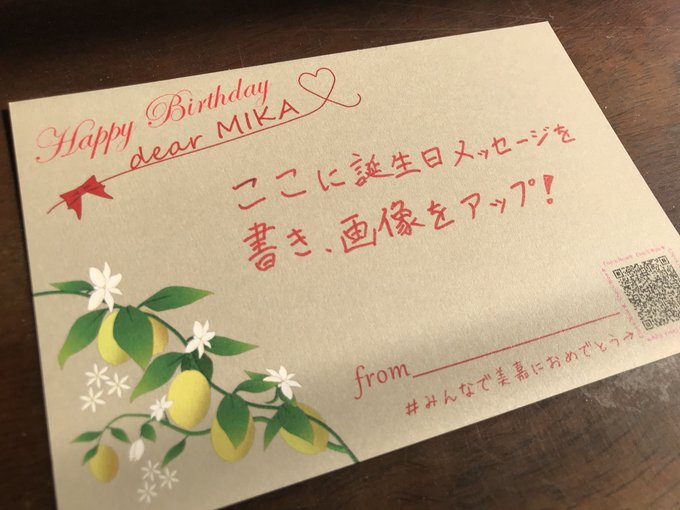 Happy Birthday
dear MIKA
ここに誕生日メッセージを
書き、画像をアップ!
from
#みんなで美嘉におめでとう→